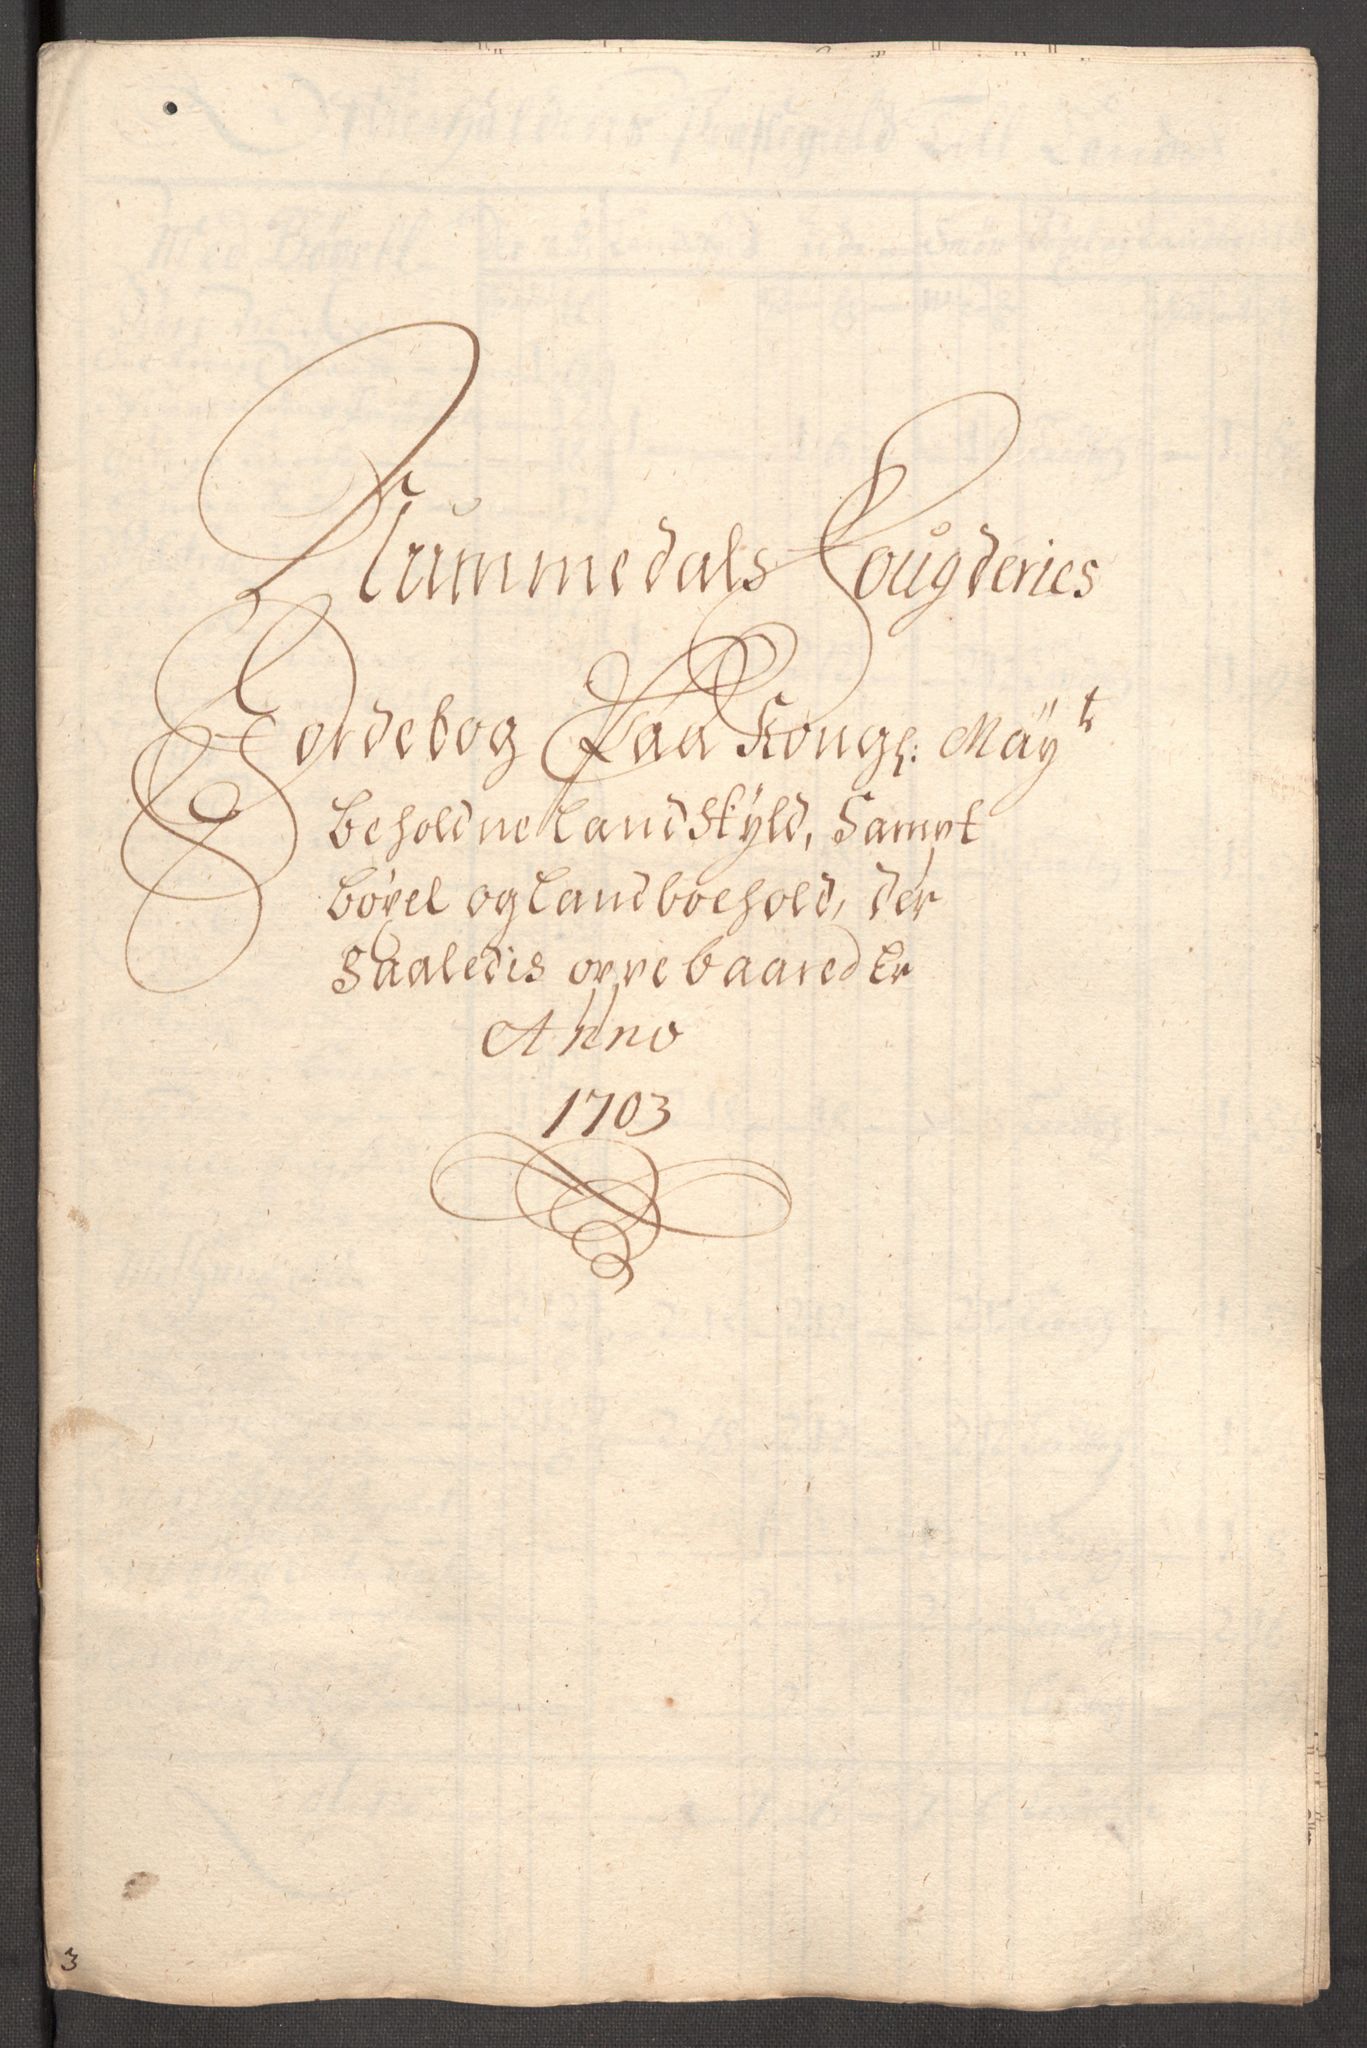 Nummedals Fougderies
Jordebog Paa Kongl: Mäÿts
beholdne Landskÿld, Sampt
bøxel og Landboehold, der
Saaledis oppebaared Er
Anno
1703
3